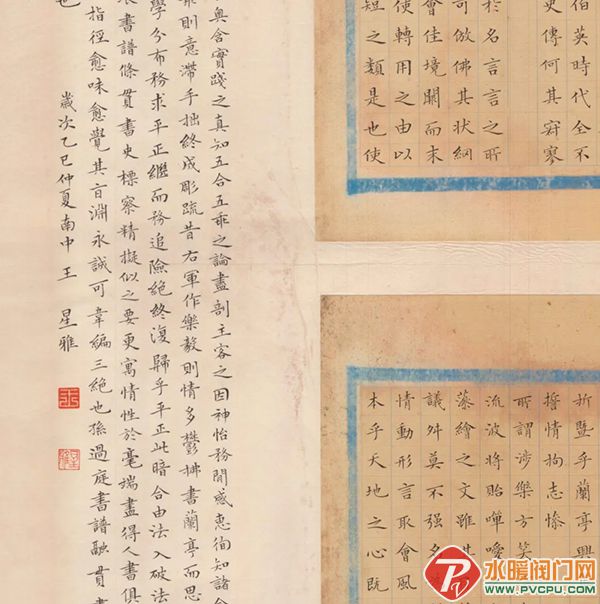 伯英時代全不
史傳何其寂寥
於名言言之所
可倣佛其狀綱
會佳境闕而未
使轉用之由以
短之類是也使
折暨乎蘭亭興
誓情拘志慘
所謂涉樂方笑
流波將貽嘽噯
藻繪之文雖其
議舛莫不强名
情動形言取會風
本乎天地之心既
奥含實踐之真知五合五乖之論盡剖主客之因神怡務閒感惠徇知諸合
則意滯手拙終成彫疏昔右軍作樂毅則情多鬱拂書蘭亭而思
學分布務求平正繼而務追險絶終復歸乎平正此暗合由法入破法
書譜條貫書史標察精擬似之要更寓情性於毫端盡得人書俱
指徑愈味愈覺其旨淵永誠可韋編三絶也孫過庭書譜融貫書
也
歲次乙巳仲夏南中王星雅
水暖阀门网
WWW.PVCPU.COM